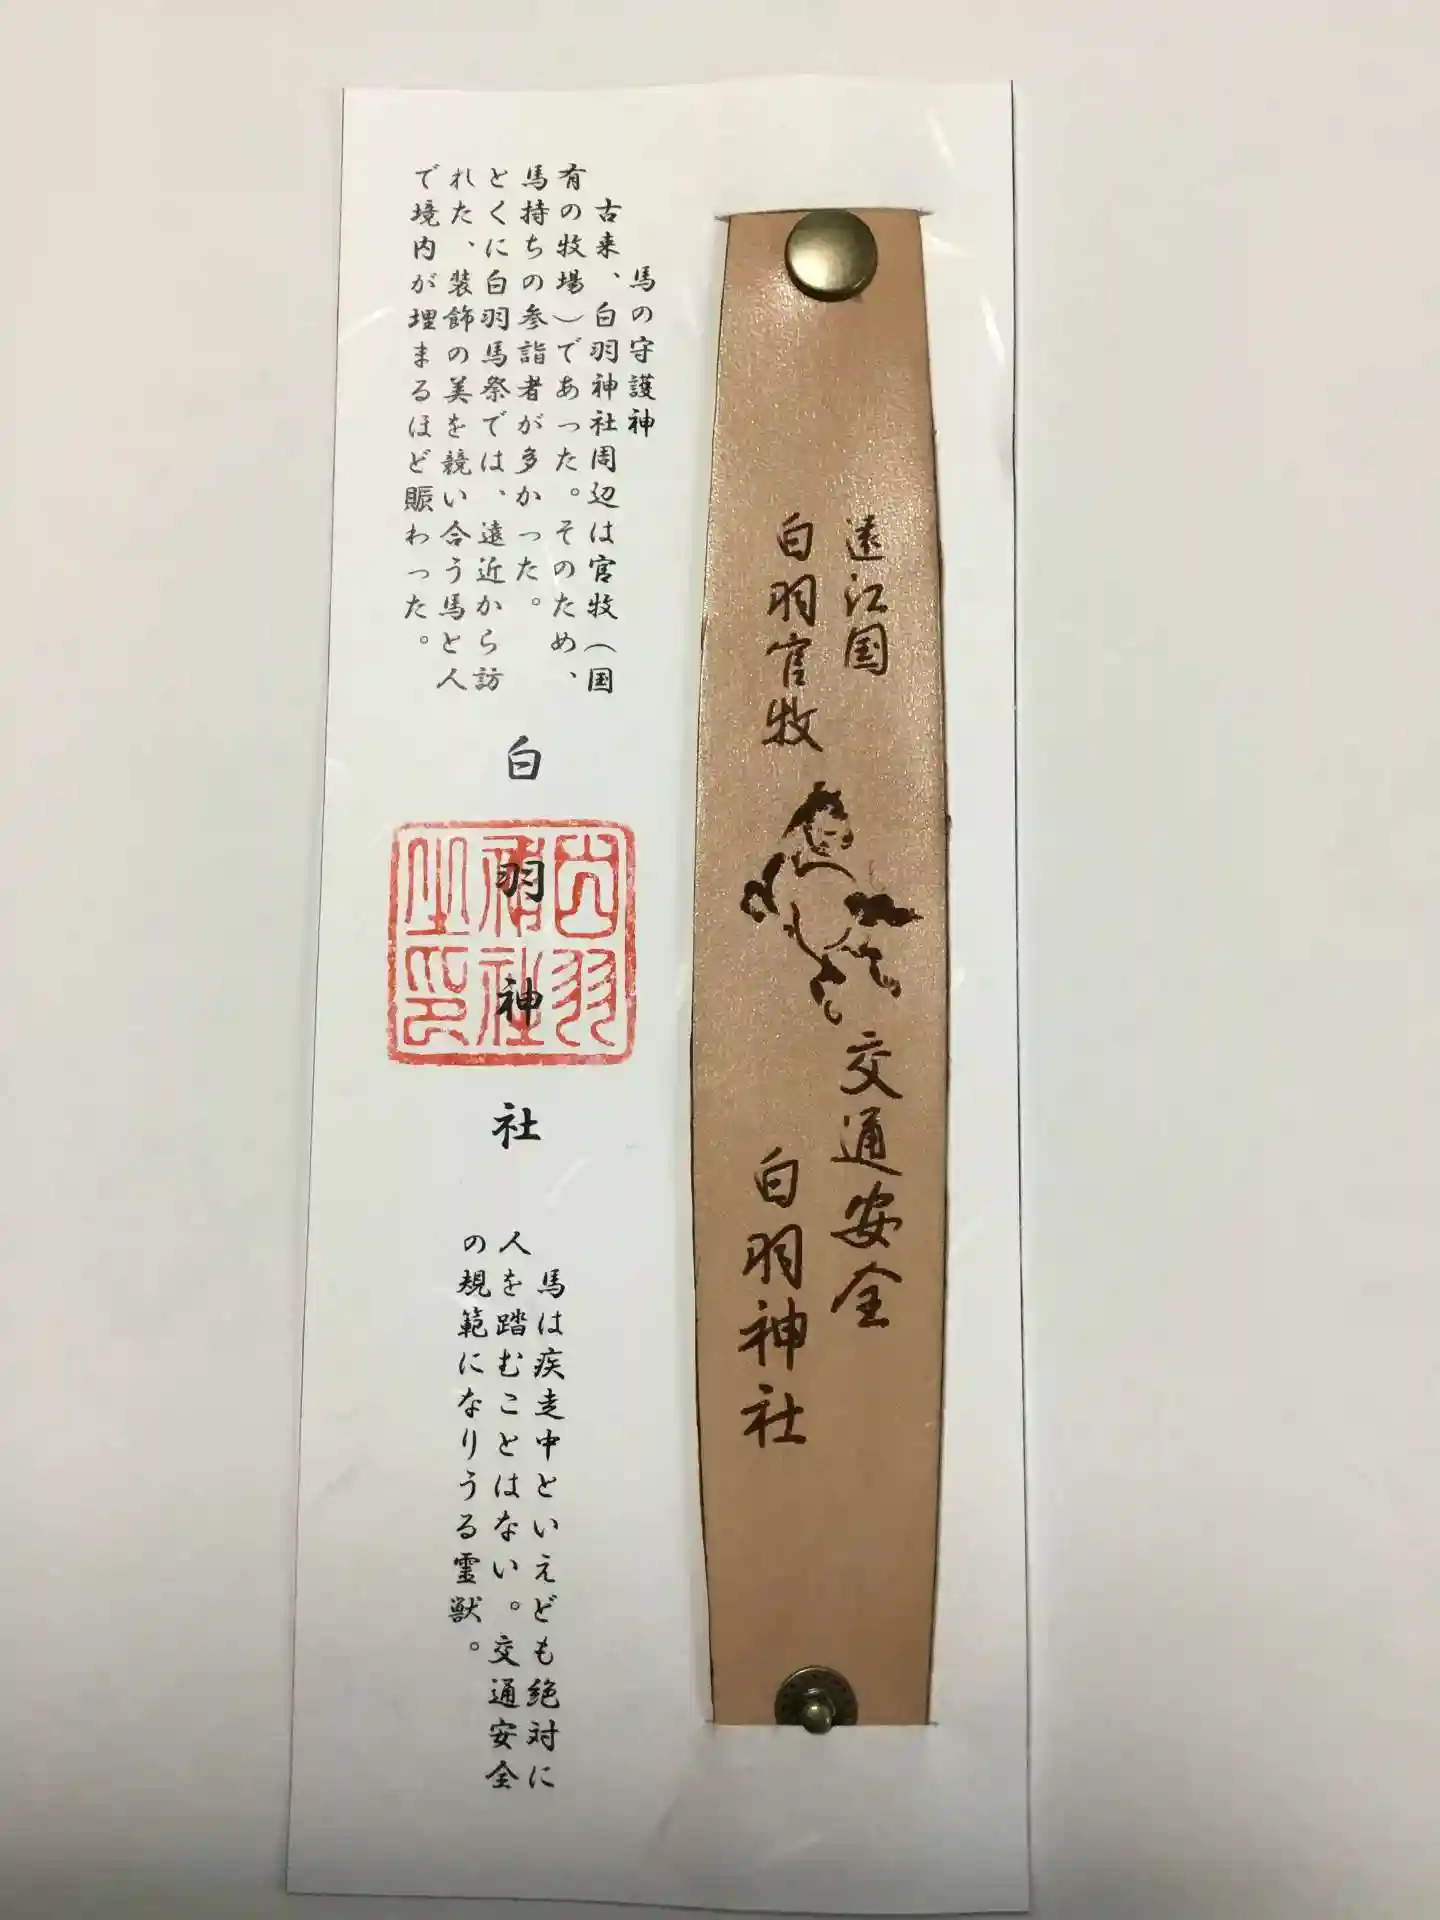 遠江国
白羽官牧
交通安全
白羽神社
馬の守護神
古来、白羽神社周辺は官牧（国
有の牧場）であった。そのため、
馬持ちの参詣者が多かった。
とくに白羽馬祭では、遠近から訪
れた、装飾の美を競い合う馬と人
で境内が埋まるほど賑わった。
白羽神社
白羽
神社
之印
馬は疾走中といえども絶対に
人を踏むことはない。交通安全
の規範になりうる霊獣。